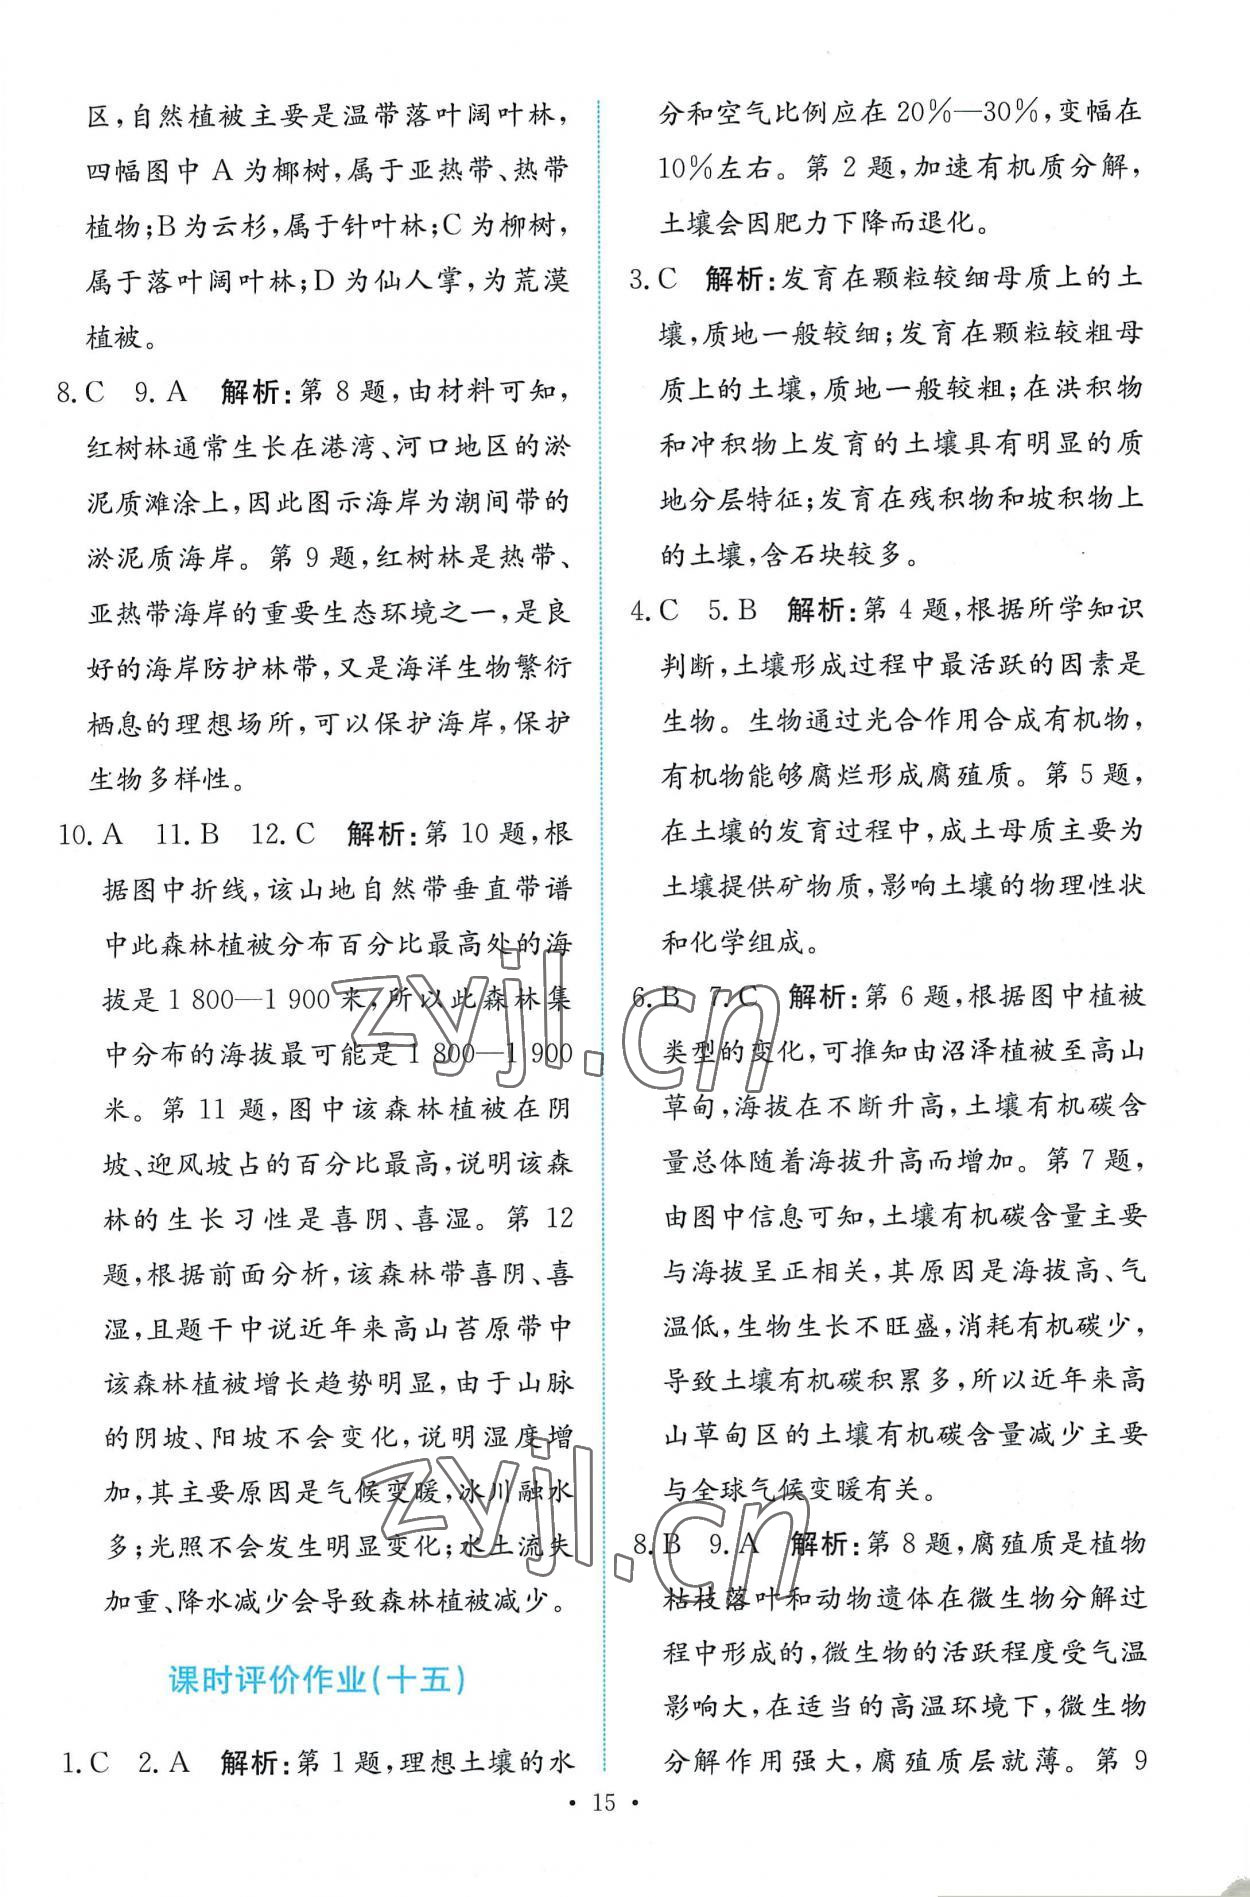 区，自然植被主要是温带落叶阔叶林，
四幅图中 A 为椰树，属于亚热带、热带
植物；B 为云杉，属于针叶林；C 为柳树，
属于落叶阔叶林；D 为仙人掌，为荒漠
植被。
8. C 9. A 解析：第 8 题，由材料可知，
红树林通常生长在港湾、河口地区的淤
泥质滩涂上，因此图示海岸为潮间带的
淤泥质海岸。第 9 题，红树林是热带、
亚热带海岸的重要生态环境之一，是良
好的海岸防护林带，又是海洋生物繁衍
栖息的理想场所，可以保护海岸，保护
生物多样性。
10. A 11. B 12. C 解析：第 10 题，根
据图中折线，该山地自然带垂直带谱
中此森林植被分布百分比最高处的海
拔是 1 800—1 900 米，所以此森林集
中分布的海拔最可能是 1 800—1 900
米。第 11 题，图中该森林植被在阴
坡、迎风坡占的百分比最高，说明该森
林的生长习性是喜阴、喜湿。第 12
题，根据前面分析，该森林带喜阴、喜
湿，且题干中说近年来高山苔原带中
该森林植被增长趋势明显，由于山脉
的阴坡、阳坡不会变化，说明湿度增
加，其主要原因是气候变暖，冰川融水
多；光照不会发生明显变化；水土流失
加重、降水减少会导致森林植被减少。
课时评价作业(十五)
1. C 2. A 解析：第 1 题，理想土壤的水
分和空气比例应在 20%—30%，变幅在
10%左右。第 2 题，加速有机质分解，
土壤会因肥力下降而退化。
3. C 解析：发育在颗粒较细母质上的土
壤，质地一般较细；发育在颗粒较粗母
质上的土壤，质地一般较粗；在洪积物
和冲积物上发育的土壤具有明显的质
地分层特征；发育在残积物和坡积物上
的土壤，含石块较多。
4. C 5. B 解析：第 4 题，根据所学知识
判断，土壤形成过程中最活跃的因素是
生物。生物通过光合作用合成有机物，
有机物能够腐烂形成腐殖质。第 5 题，
在土壤的发育过程中，成土母质主要为
土壤提供矿物质，影响土壤的物理性状
和化学组成。
6. B 7. C 解析：第 6 题，根据图中植被
类型的变化，可推知由沼泽植被至高山
草甸，海拔在不断升高，土壤有机碳含
量总体随着海拔升高而增加。第 7 题，
由图中信息可知，土壤有机碳含量主要
与海拔呈正相关，其原因是海拔高、气
温低，生物生长不旺盛，消耗有机碳少，
导致土壤有机碳积累多，所以近年来高
山草甸区的土壤有机碳含量减少主要
与全球气候变暖有关。
8. B 9. A 解析：第 8 题，腐殖质是植物
枯枝落叶和动物遗体在微生物分解过
程中形成的，微生物的活跃程度受气温
影响大，在适当的高温环境下，微生物
分解作用强大，腐殖质层就薄。第 9
• 15 •
zyjl.cn
zyjl.cn